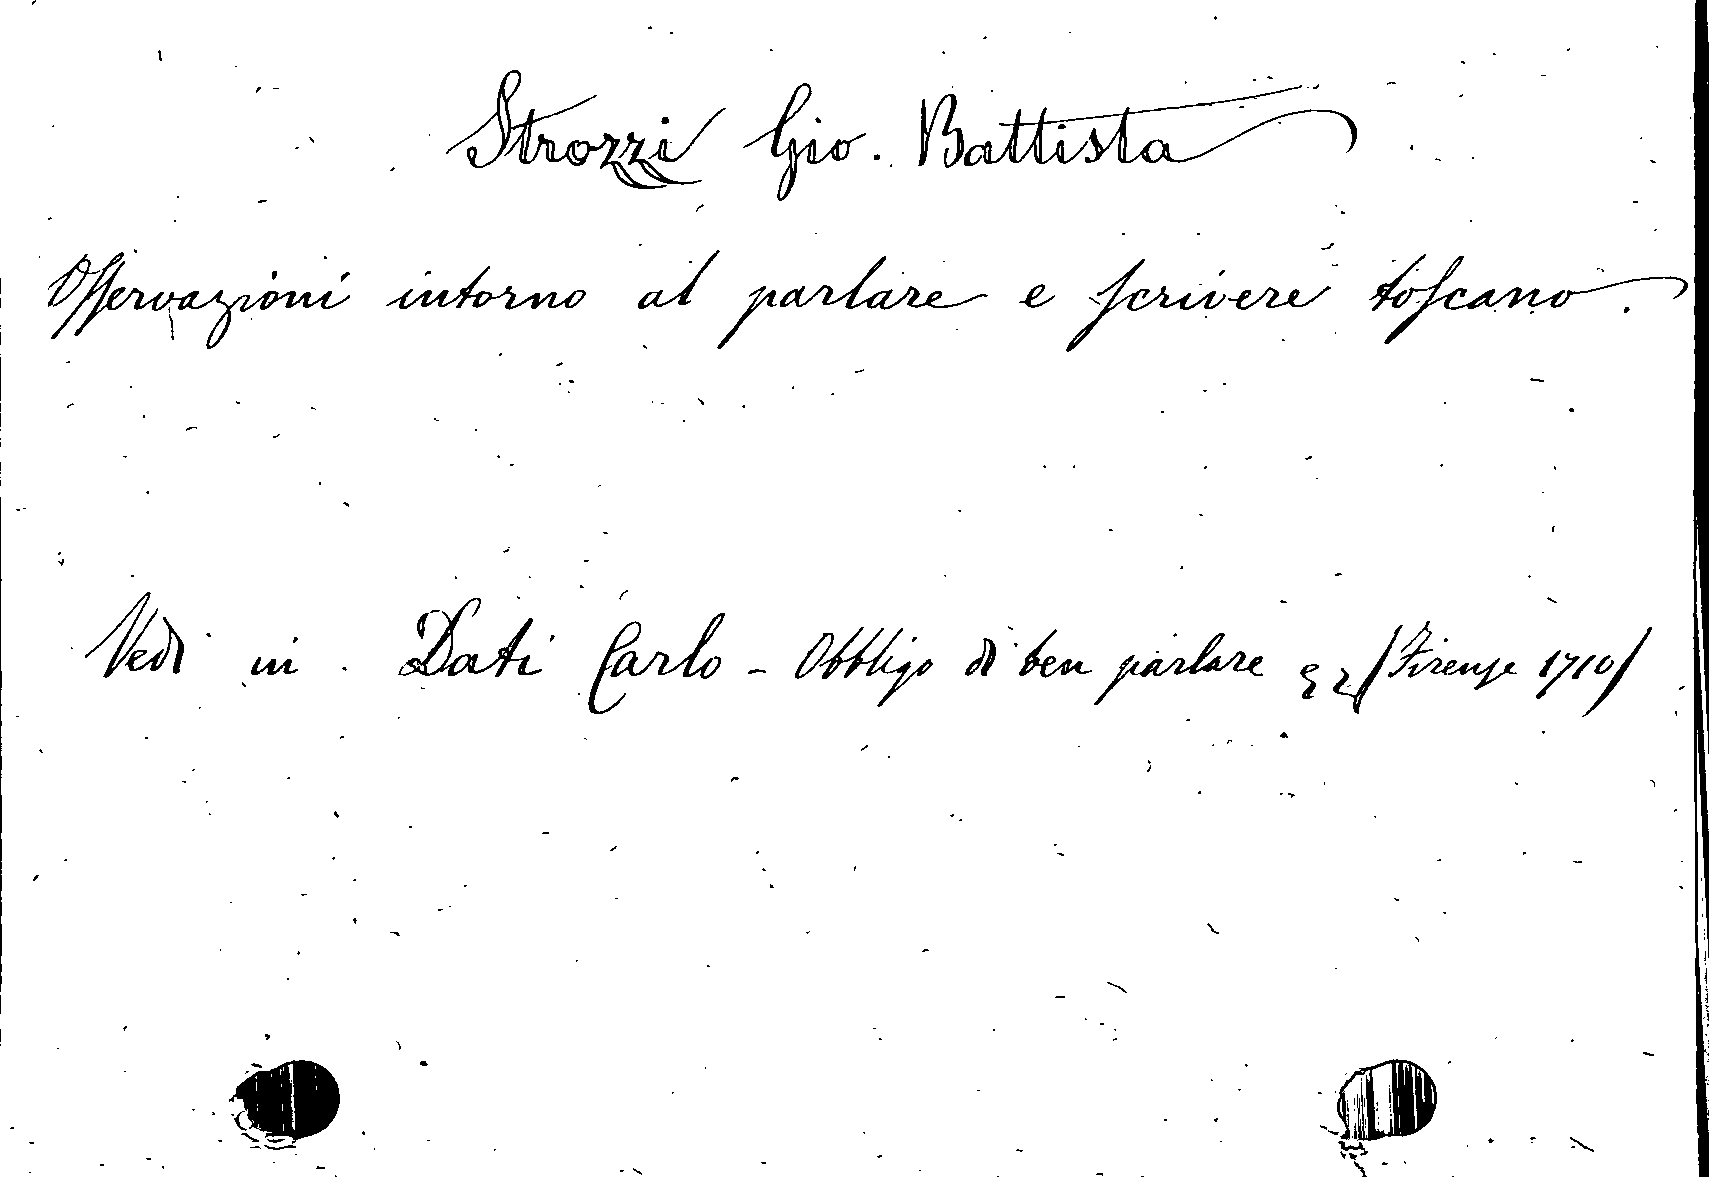 Strozzi Gio. Battista
Osservazioni intorno al parlare e scrivere toscano.
Vedi in. Dati Carlo - Obbligo di ben parlare (Firenze 1710)